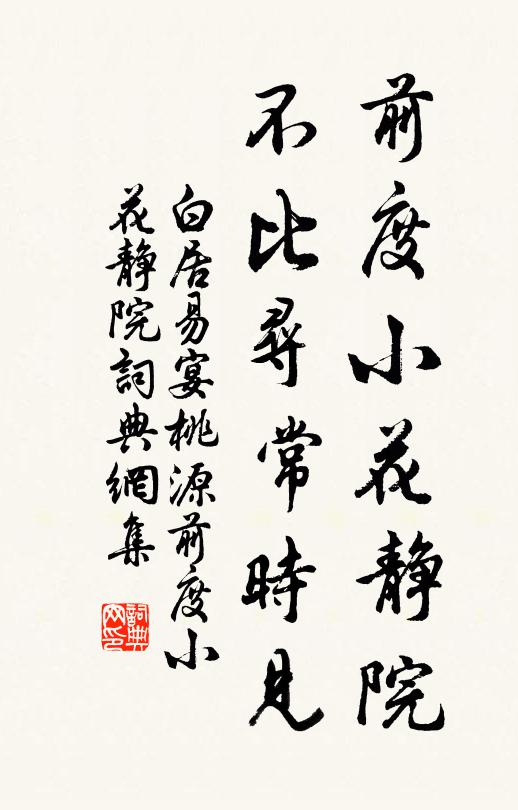 前度小花静院
不比尋常時見
白居易宴桃源前度小
花静院詞典網集
詞典
网印